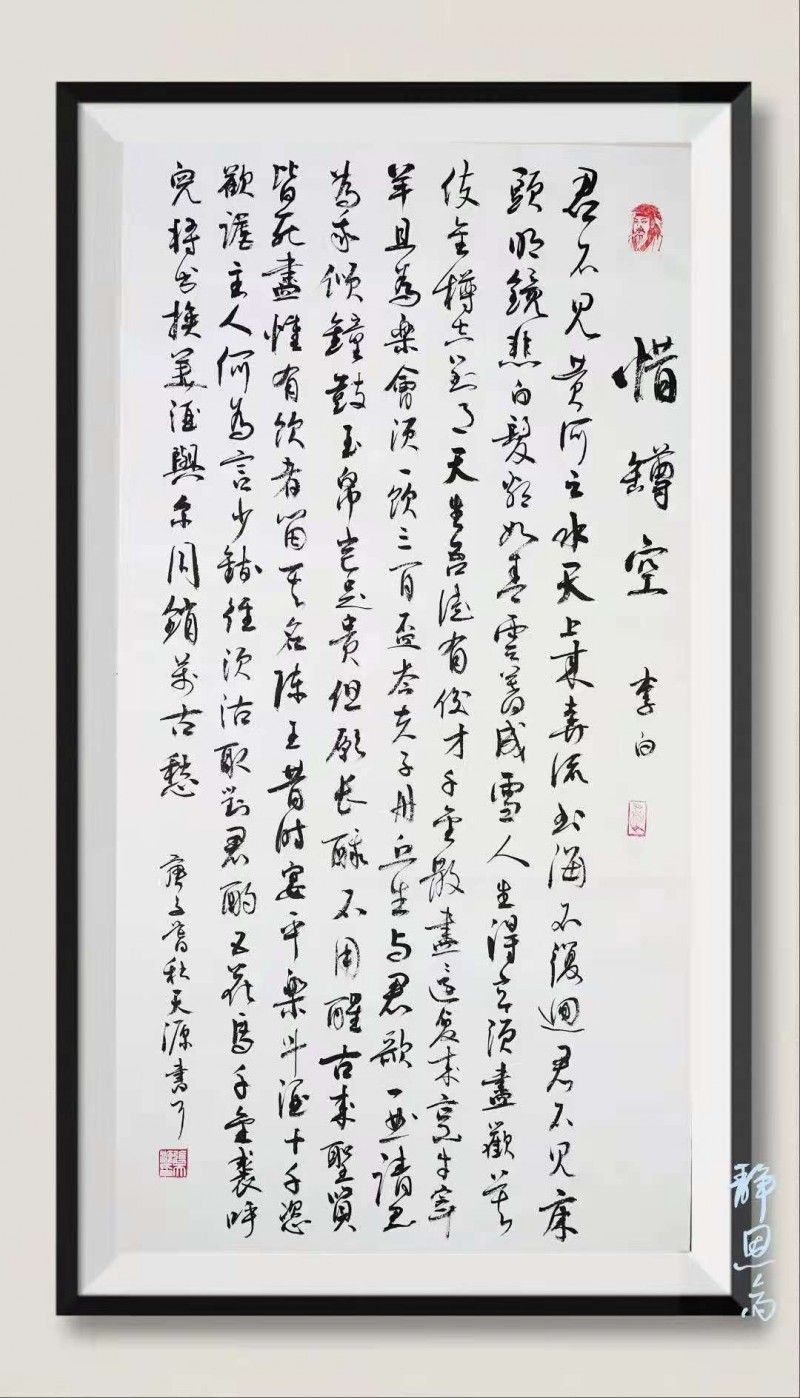 惜罇空 李白
君不見黃河之水天上來奔流到海不復迴君不見床
頭明鏡悲白髮朝如青雲暮成雪人生得意須盡歡莫
使金樽空對月天生吾徒有俊才千金散盡還復來烹牛宰
羊且為樂會須一飲三百盃岑夫子丹丘生与君歌一曲請君
為我傾鐘鼓玉帛豈足貴但願長醉不用醒古來聖賢
皆死盡惟有飲者留其名陳王昔時宴平樂斗酒十千恣
歡謔主人何為言少錢徑須沽取對君酌五花馬千金裘呼
兒將出換美酒與爾同銷萬古愁
庚子暮秋天源書